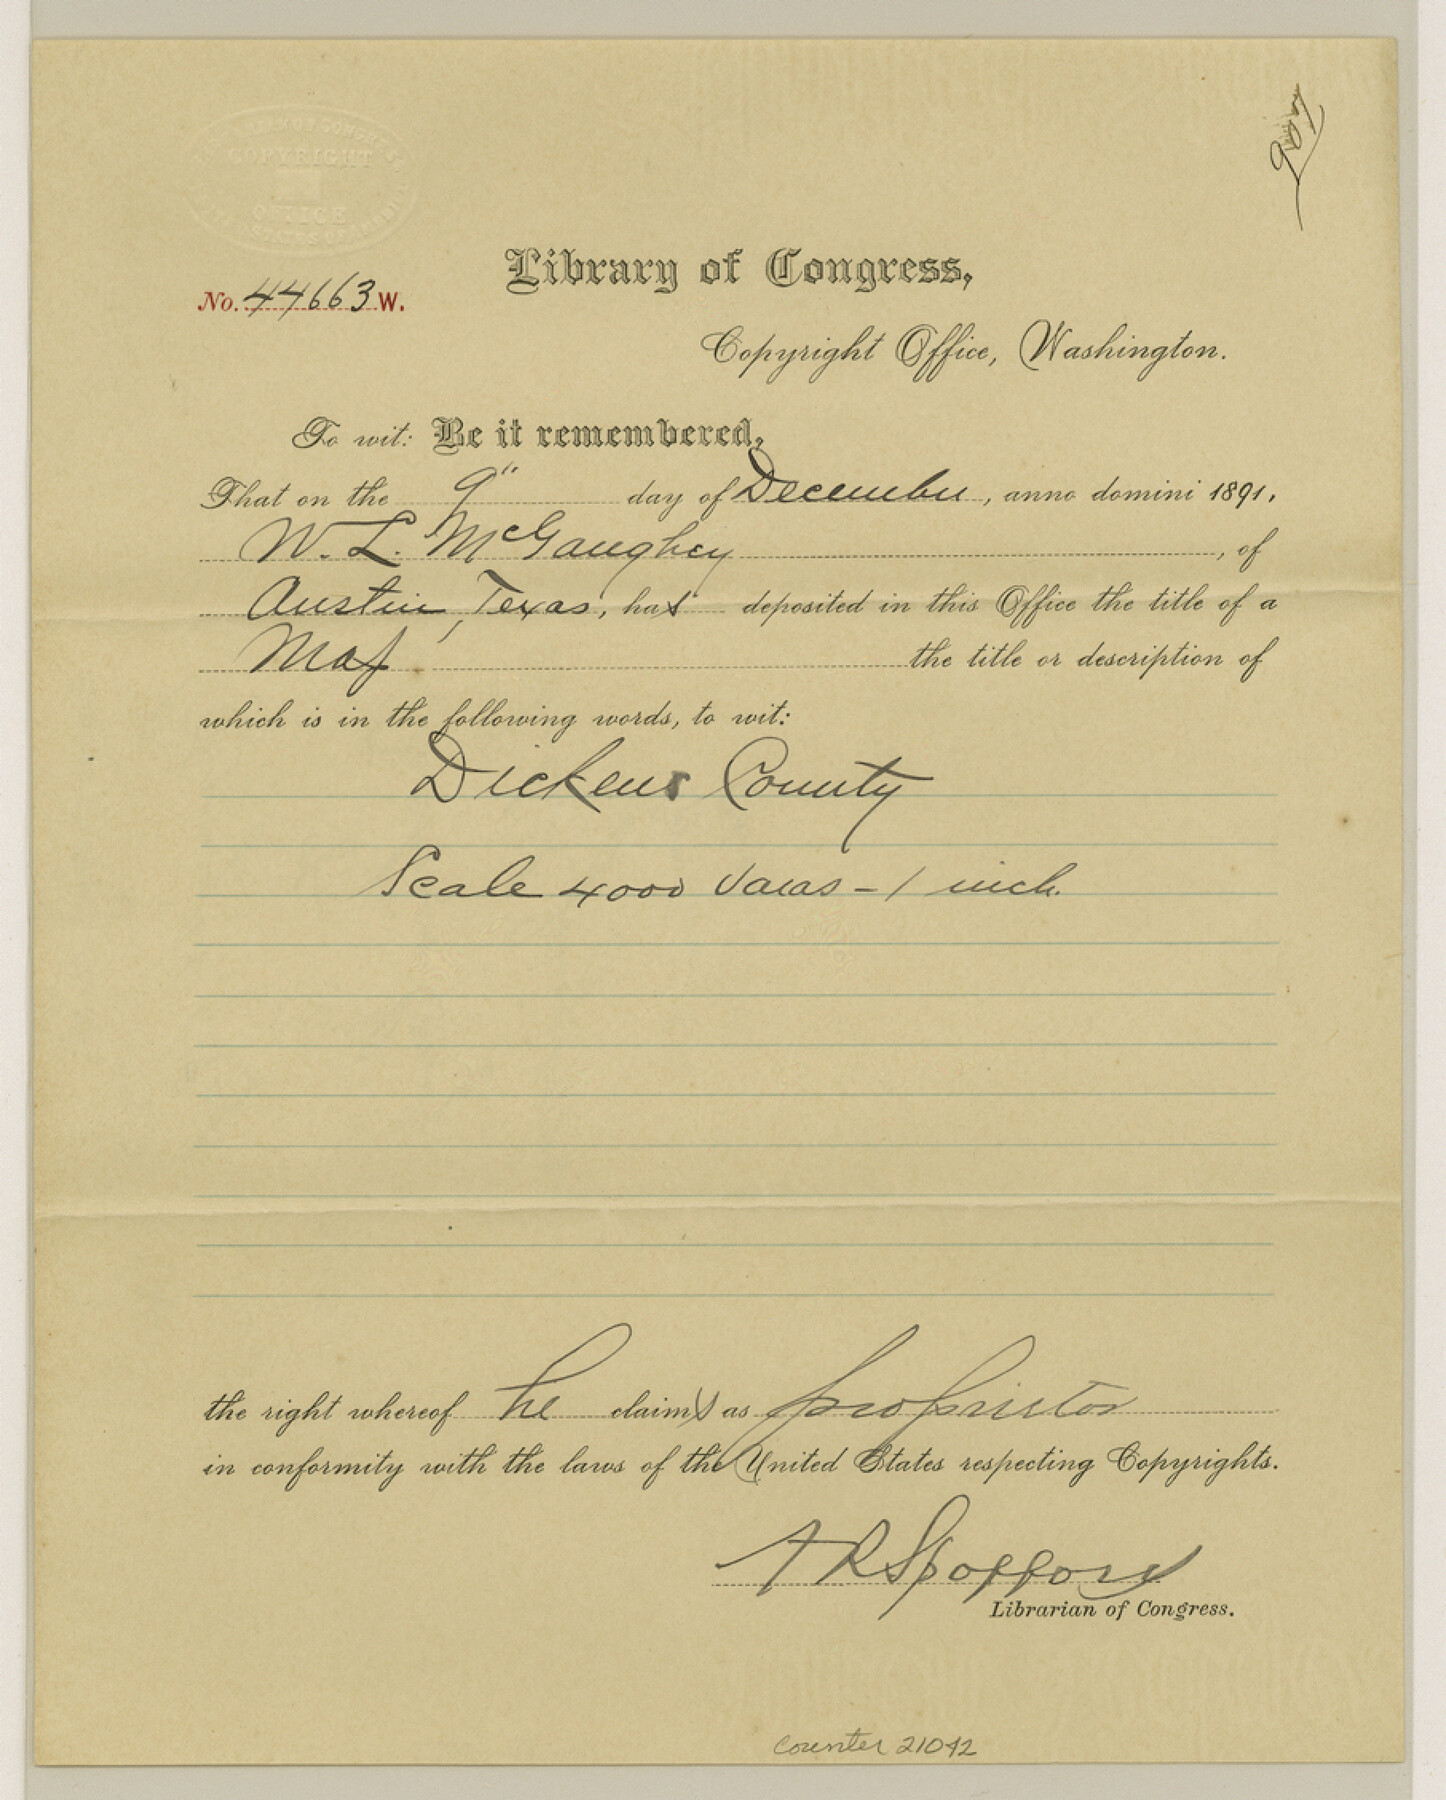 COPYRIGHT
OFFICE
No. 44663 W.
Library of Congress,
Copyright Office, Washington.
To wit: Be it remembered,
That on the 9" day of December, anno domini 1891,
W. L. McGaughey, of
Austin, Texas, has deposited in this Office the title of a
Map the title or description of
which is in the following words, to wit:
Dickens County
Scale 4000 Varas - 1 inch.
the right whereof he claims as proprietor
in conformity with the laws of the United States respecting Copyrights.
A R Spofford
Librarian of Congress.
Counter 21042